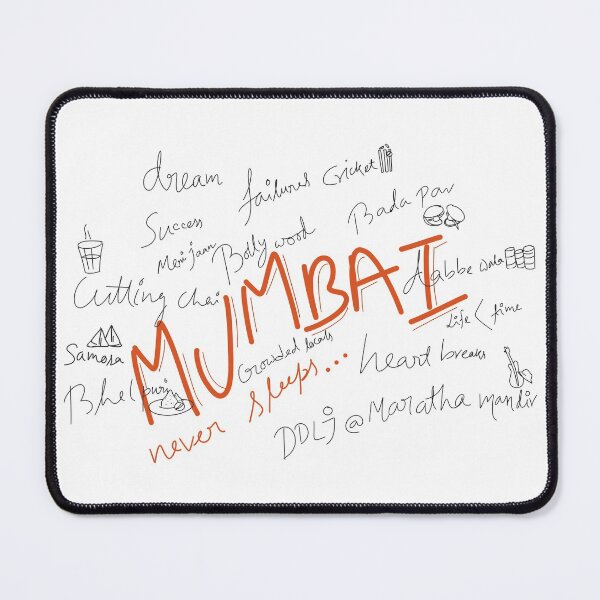 dream failures Cricket
Success Bada Pav
Meri jaan Bollywood
Cutting Chai Dabbe wala
MUMBAI
Life < time
Samosa Crowded locals heart breaks
Bhel puri never sleeps...
DDLJ @ Maratha mandir